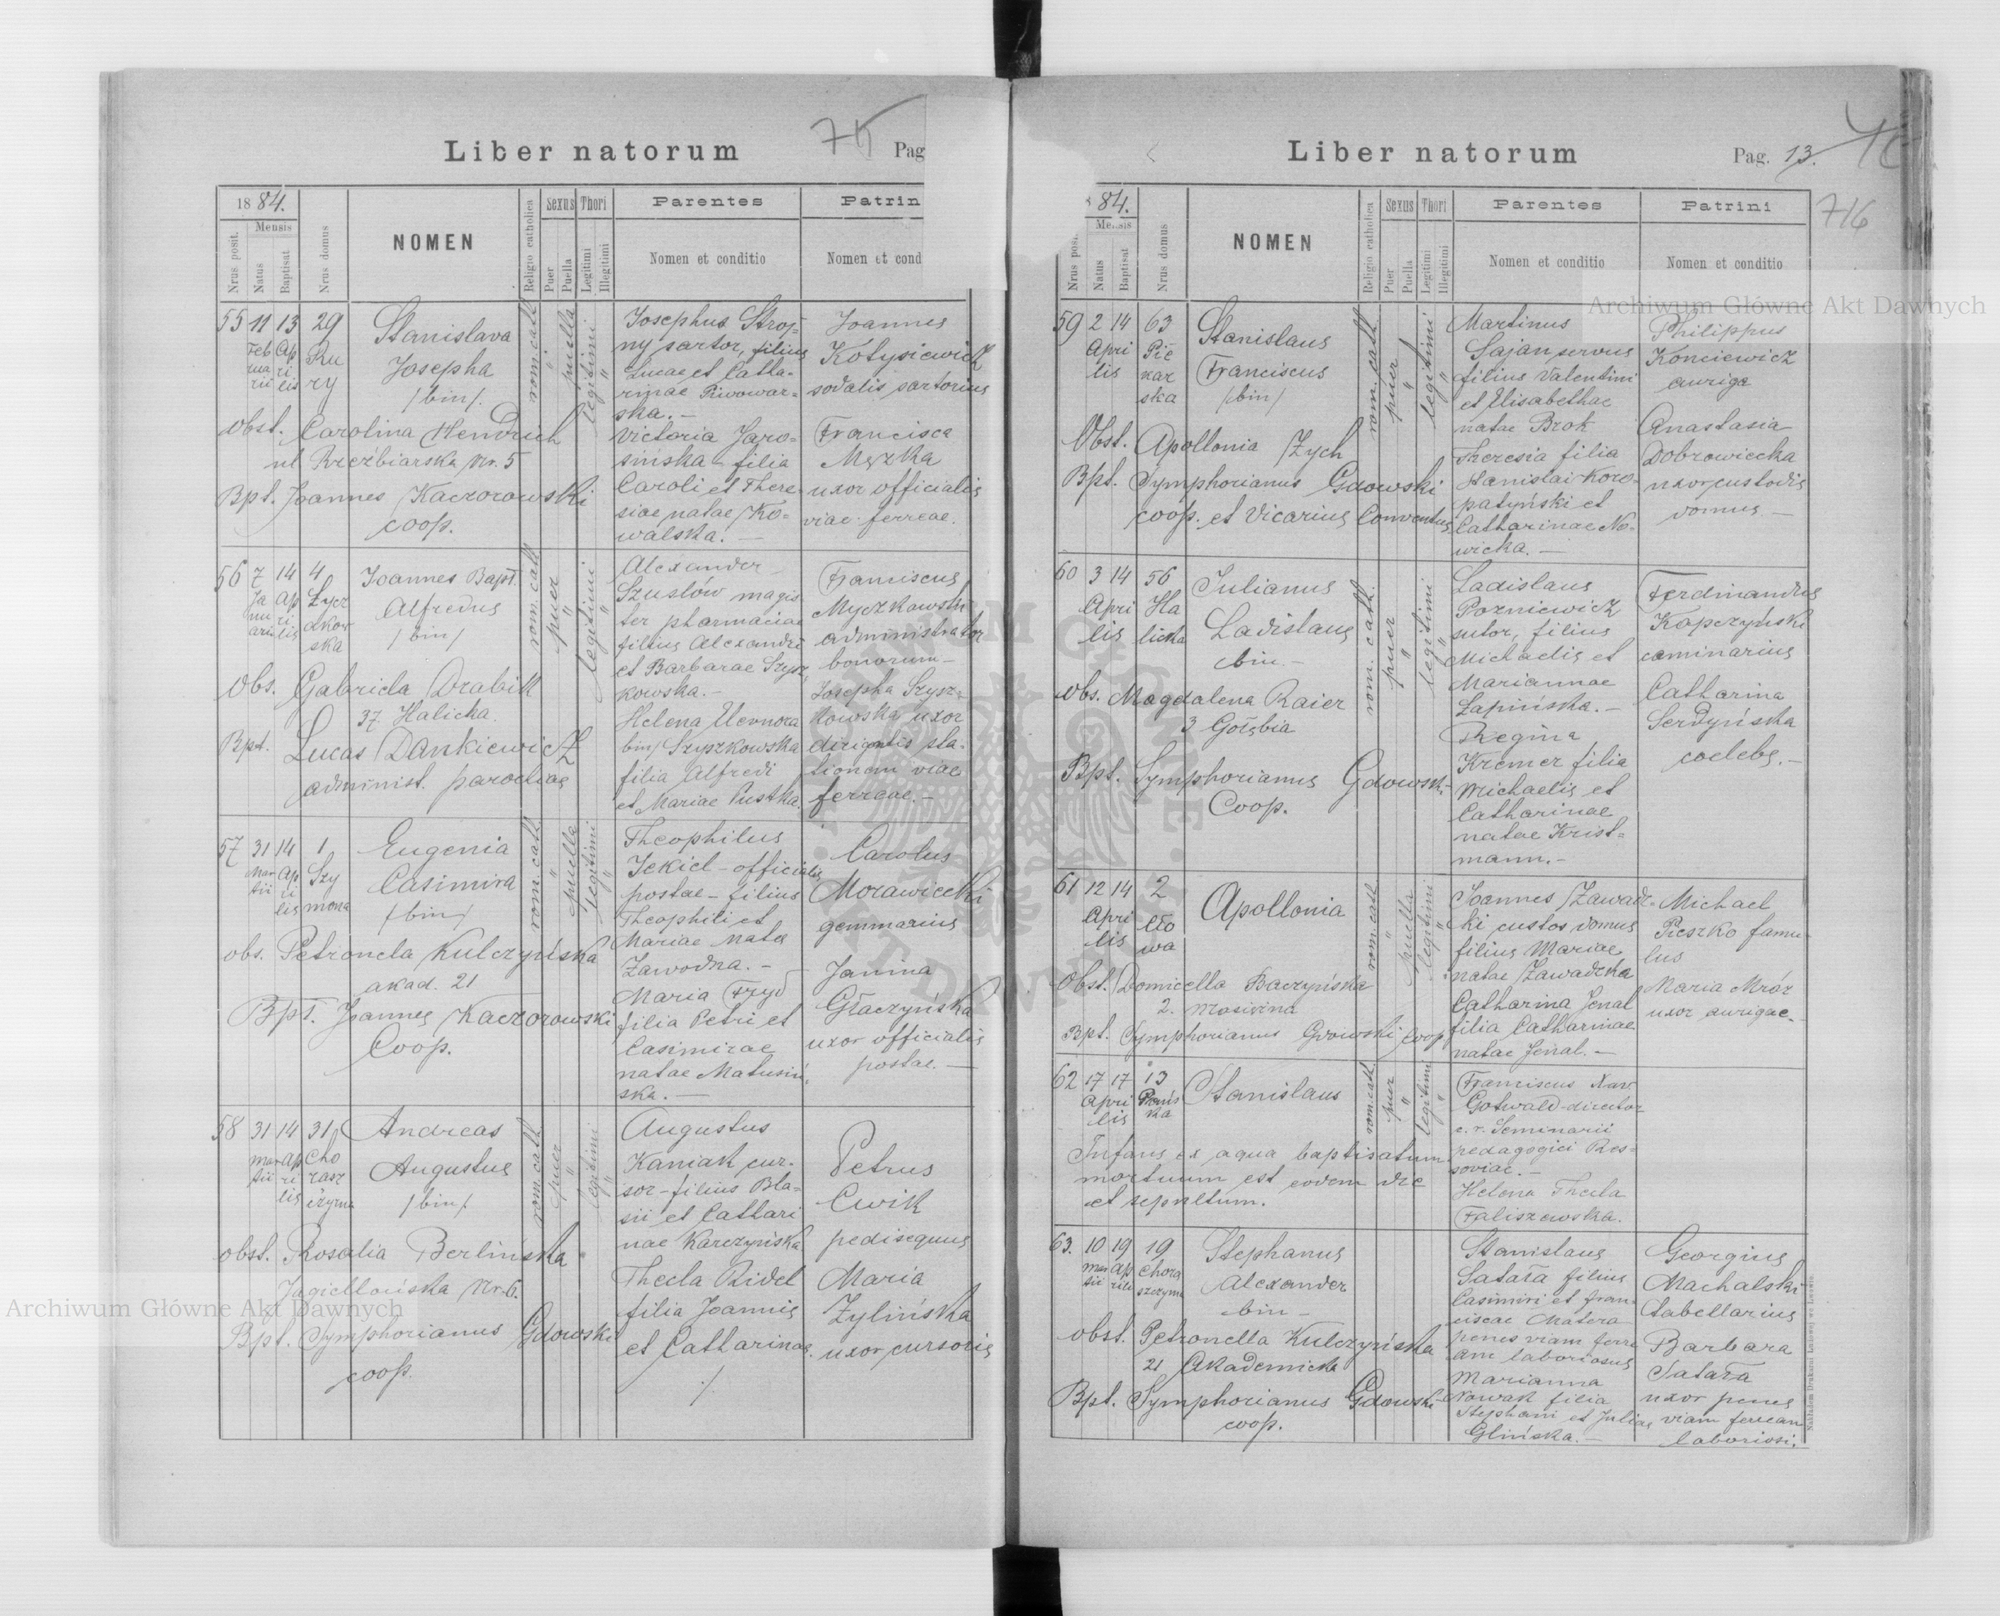 Liber natorum
75
Pag
1884.
Mensis
Nrus posit.
Natus
Baptisat
Nrus domus
NOMEN
Religio catholica
Sexus
Puer
Puella
Thori
Legitimi
Illegitimi
Parentes
Nomen et conditio
Patrin
Nomen et cond
55 11 13 29
Feb Ap
rua ri
rii lis
Ku
ry
Stanislava
Josepha
/bin/.
rom. cath
puella
legitimi
Obst. Carolina Hendrich
ul Rzeźbiarska Nr. 5
Bpt. Joannes Kaczorowski
coop.
Josephus Stroj=
ny sartor, filius
Lucae et Catha-
rinae Piwowar-
ska. —
Victoria Jaro=
sińska - filia
Caroli et There=
siae natae Ko=
walska. —
Joannes
Kotysiewicz
sodalis sartorius
Francisca
Męzka
uxor officialis
viae ferreae.
56 7 14 4
Ja Ap
nu ri
arii lis
Łycz
akow
ska
Joannes Bapt.
Alfredus
/bin/
rom. cath
puer
legitimi
Obs. Gabriela Drabik
37 Halicka.
Bpt. Lucas Dankiewicz
administ. parochiae
Alexander
Szusłów magis
ter pharmaciae
filius Alexandri
et Barbarae Szysz
kowska. —
Helena Eleonora
bin/ Szyszkowska
filia Alfredi
et Mariae Pustka.
Franciscus
Myczkowski
administrator
bonorum —
Josepha Szysz=
kowska uxor
dirigentis sta-
tionem viae
ferreae. —
57 31 14 1
Mar Ap
tii ri
lis
Szy
mona
Eugenia
Casimira
/bin/
rom. cath
puella
legitimi
obs. Petronela Kulczyńska
akad. 21
Bpt. Joannes Kaczorowski
Coop.
Theophilus
Jekiel - officialis
postae - filius
Theophili et
Mariae nata
Zawodna. —
Maria Fryd
filia Petri et
Casimirae
natae Matusiń
ska. —
Carolus
Morawiecki
gemmarius
Janina
Głaczyńska
uxor officialis
postae. —
58 31 14 31
Mar Ap
tii ri
lis
Cho
rąsz
czyzna
Andreas
Augustus
/bin/
rom. cath
puer
legitimi
obst. Rosalia Berlińska
Jagiellońska Nr. 6.
Bpt. Symphorianus Gdowski
coop.
Augustus
Kaniak cur-
sor - filius Bla=
sii et Cathari
nae Karczyńska
Thecla Ridel
filia Joannis
et Catharinae.
Petrus
Cwik
pedisequus
Maria
Zylińska
uxor cursoris
Liber natorum
Pag. 13.
76
716
84.
Mensis
Nrus posit
Natus
Baptisat
Nrus domus
NOMEN
Religio catholica
Sexus
Puer
Puella
Thori
Legitimi
Illegitimi
Parentes
Nomen et conditio
Patrini
Nomen et conditio
59 2 14 63
Apri
lis
Pie
kar
ska
Stanislaus
Franciscus
/bin/
rom. cath.
puer
legitimi
Obst. Apollonia Zych
Bpt. Symphorianus Gdowski
coop. et Vicarius Conventus
Martinus
Sajan servus
filius Valentini
et Elisabethae
natae Brok
Theresia filia
Stanislai Koro=
patyński et
Catharinae No-
wicka. —
Philippus
Konciewicz
auriga
Anastasia
Dobrowiecka
uxor custodis
domus —
60 3 14 56
Apri
lis
Ha
licka
Julianus
Ladislaus
bin. —
rom. cath.
puer
legitimi
Obs. Magdalena Raier
3 Gołębia
Bpt. Symphorianus Gdowski
Coop.
Ladislaus
Pozniewicz
sutor, filius
Michaelis et
Mariannae
Łapińska. —
Regina
Kremer filia
Michaelis et
Catharinae
natae Krist=
mann. —
Ferdinandus
Kopczyński
caminarius
Catharina
Serdyńska
coelebs. —
61 12 14 2
Apri
lis
Cło
wa
Apollonia
rom. cath
puella
legitimi
Obst. Domicella Baczyńska
2.
Bpt. Symphorianus Gdowski Coop
Joannes Zawadz-
ki custos domus
filius Mariae
natae Zawadzka
Catharina Jenal
filia Catharinae
natae Jenal. —
Michael
Pieszko famu-
lus
Maria Mróz
uxor aurigae. —
62 17 17 13
Apri
lis
ska
Stanislaus
rom. cath
puer
legitimi
Infans ex aqua baptisatum
mortuum est eodem die
et sepultum.
Franciscus Xav
Gotwald - director
c. r. Seminarii
pedagogici Res-
soviae. —
Helena Thecla
Faliszewska.
63. 10 19 19
Mar Ap
tii rilis
Chorą
szczyzna
Stephanus
Alexander
bin —
obst. Petronella Kulczyńska
21 Akademicka
Bpt. Symphorianus Gdowski
coop.
Stanislaus
Satała filius
Casimiri et Fran
ciscae Matera
penes viam ferre
am laboriosus
Marianna
Nowak filia
Stephani et Juliae
Glińska. —
Georgius
Machalski
tabellarius
Barbara
Satała
uxor penes
viam ferream
laboriosi.
Archiwum Główne Akt Dawnych
Archiwum Główne Akt Dawnych